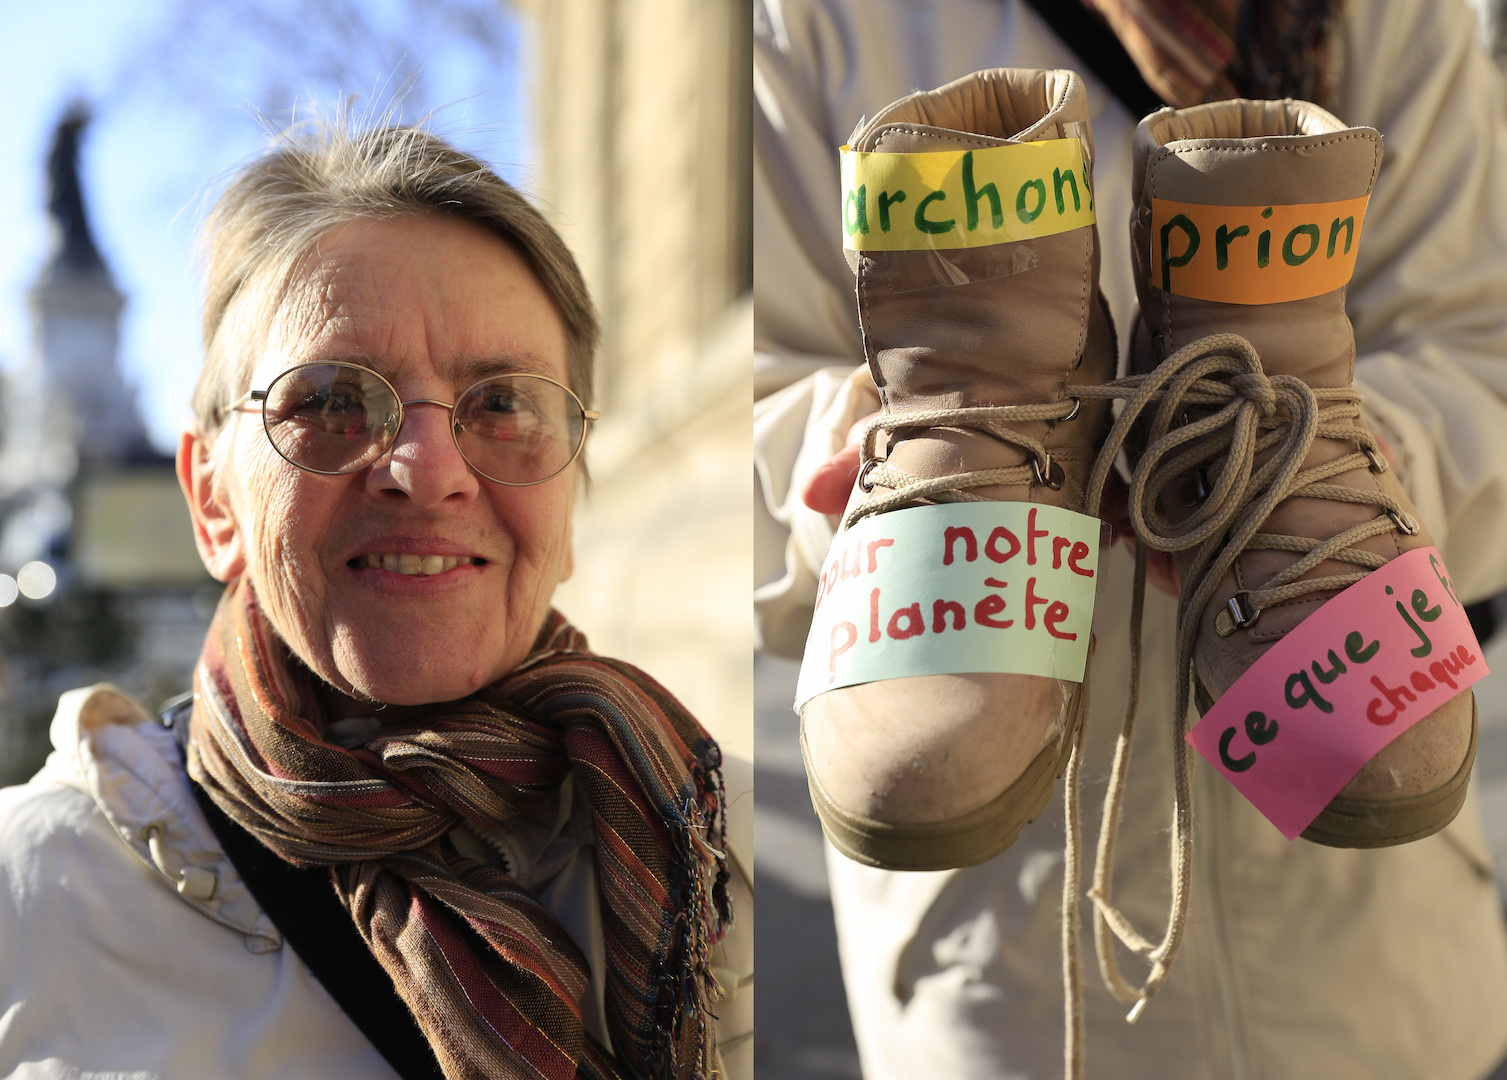 archons
prion
pour notre
planète
ce que je
chaque